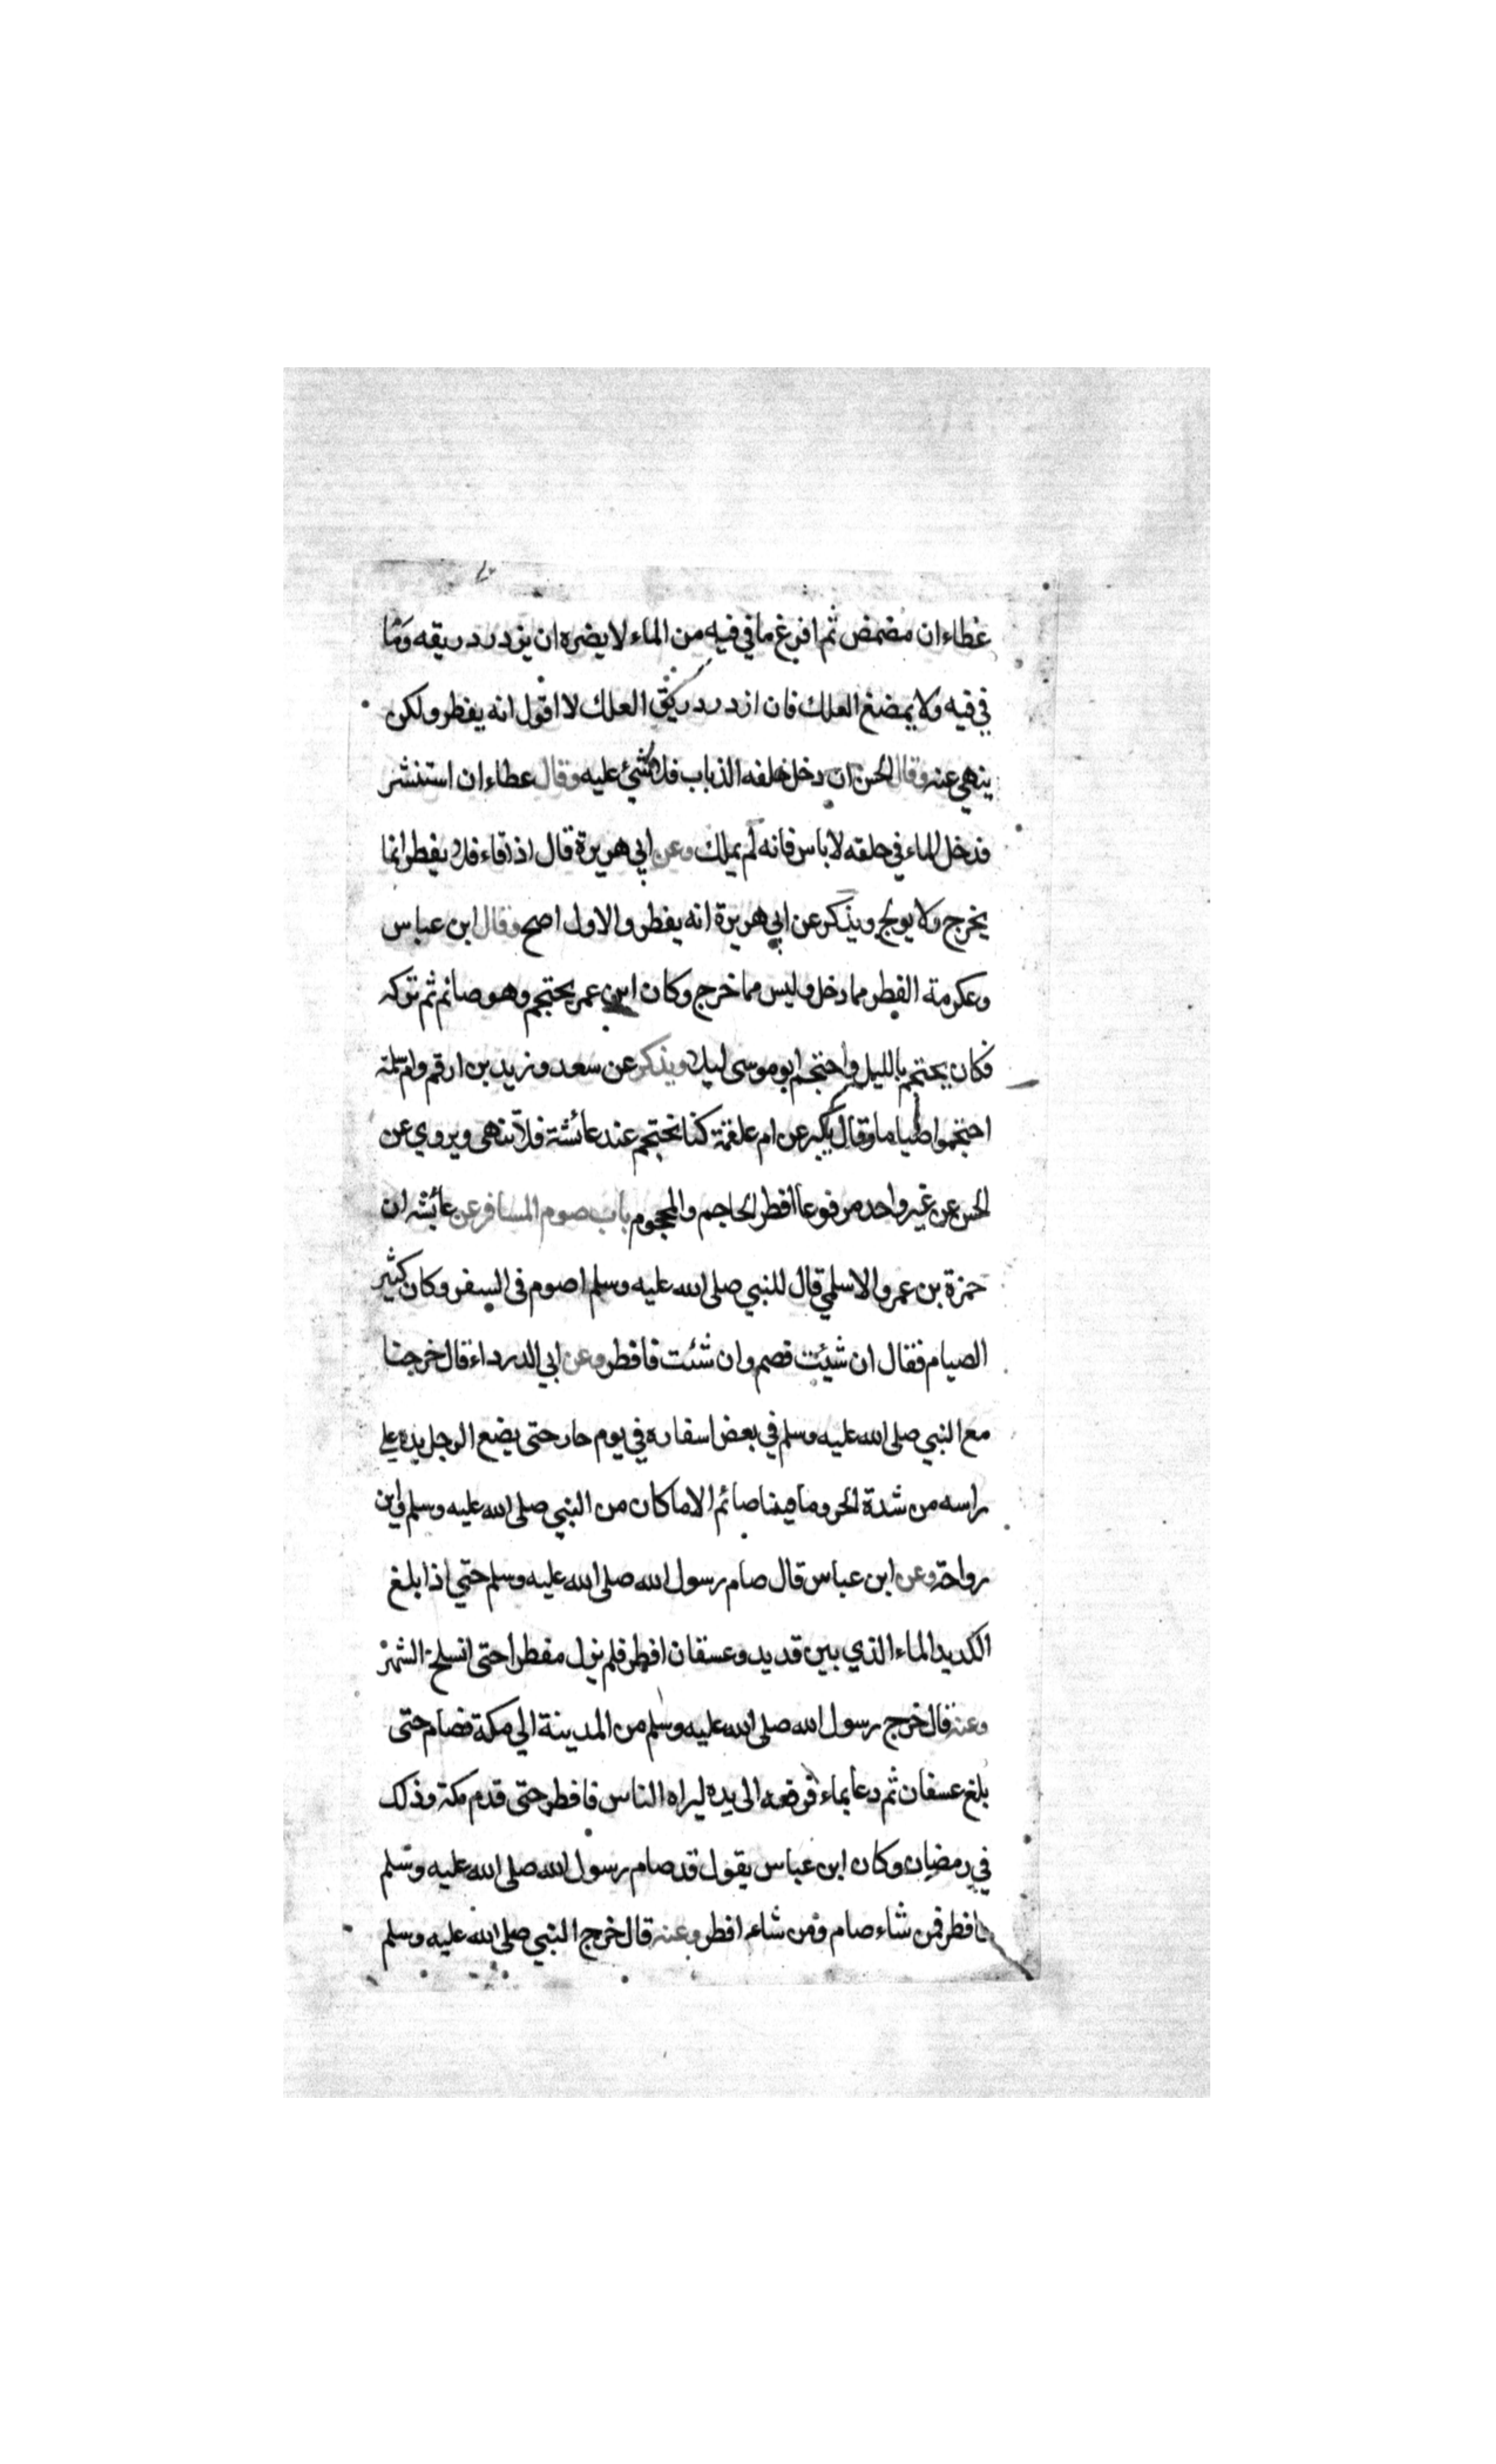 عطاء ان مضمض ثم افرغ ما في فيه من الماء لا يضره ان يزدرد ريقه وما
في فيه ولا يمضغ العلك فان ازدرد ريق العلك لا اقول انه يفطر ولكن
ينهي عنه وقال الحسن ان دخل حلقه الذباب فلا شئ عليه وقال عطاء ان استنشر
فدخل الماء في حلقه لا باس فانه لم يملك وعن ابي هريرة قال اذا قاء فلا يفطر انما
يخرج ولا يولج ويذكر عن ابي هريرة انه يفطر والاول اصح وقال ابن عباس
وعكرمة الفطر مما دخل وليس مما خرج وكان ابن عمر يحتجم وهو صائم ثم تركه
فكان يحتجم بالليل واحتجم ابو موسى ليلا ويذكر عن سعد وزيد بن ارقم وام سلمة
احتجموا صياما وقال بكير عن ام علقمة كنا نحتجم عند عائشة فلا تنهى ويروي عن
الحسن عن غير واحد مرفوعا افطر الحاجم والمحجوم باب صوم المسافر عن عائشه ان
حمزة بن عمرو الاسلمي قال للنبي صلى الله عليه وسلم اصوم في السفر وكان كثير
الصيام فقال ان شيئت فصم وان شئت فافطر وعن ابي الدرداء قال خرجنا
مع النبي صلى الله عليه وسلم في بعض اسفاره في يوم حار حتى يضع الرجل يده على
راسه من شدة الحر وما فينا صائم الا ما كان من النبي صلى الله عليه وسلم وابن
رواحة وعن ابن عباس قال صام رسول الله صلى الله عليه وسلم حتي اذا بلغ
الكديد الماء الذي بين قديد وعسفان افطر فلم يزل مفطرا حتى انسلخ الشهر
وعنه قال خرج رسول الله صلى الله عليه وسلم من المدينة الي مكة فصام حتى
بلغ عسفان ثم دعا بماء فرفعه الى يده ليراه الناس فافطر حتى قدم مكة وذلك
في رمضان وكان ابن عباس يقول قد صام رسول الله صلى الله عليه وسلم
فافطر فمن شاء صام ومن شاء افطر وعنه قال خرج النبي صلى الله عليه وسلم